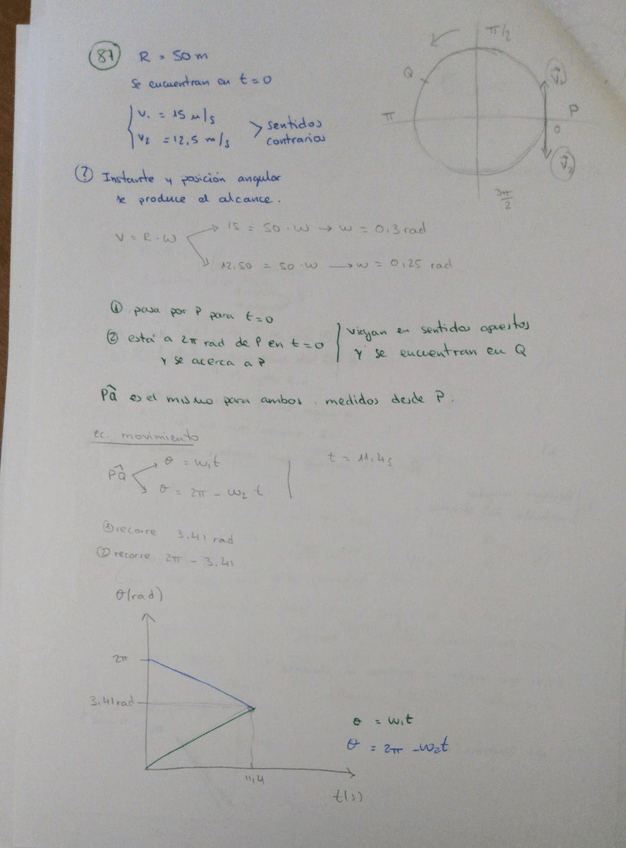 87 R = 50 m
se encuentran en t = 0
v₁ = 15 m/s
v₂ = 12,5 m/s
sentidos
contrarios
π/2
Q
π
P
0
v⃗₁
v⃗₂
3π/2
? Instante y posición angular
se produce el alcance.
v = R · ω
15 = 50 · ω → ω = 0.3 rad
12,50 = 50 · ω → ω = 0,25 rad
① pasa por P para t = 0
② está a 2π rad de P en t = 0
y se acerca a P
viajan en sentidos opuestos
y se encuentran en Q
PQ es el mismo para ambos, medidos desde P.
ec. movimiento
PQ
θ = ω₁t
θ = 2π - ω₂ t
t = 11.4 s
① recorre 3.41 rad
② recorre 2π - 3.41
θ(rad)
2π
3.41 rad
11,4
t(s)
θ = ω₁t
θ = 2π - ω₂t